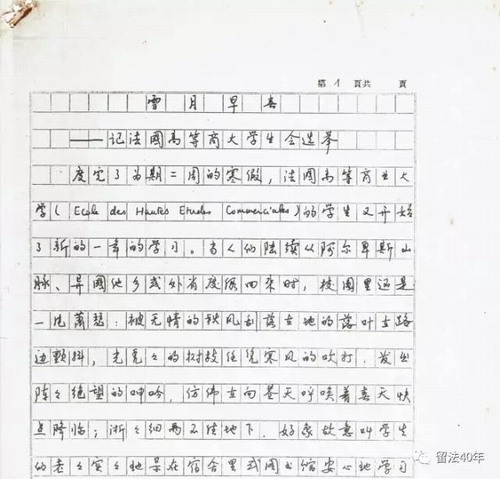 第 1 頁共 頁
雪月早春
——记法國高等商大学生会选举
度完了为期二周的寒假，法國高等商业大
学(Ecole des Hautes Etudes Commerciales)的学生又开始
了新的一章的学习。当人们陆续从阿尔卑斯山
脉、异國他乡或外省度假回来时，校园里还是
一片萧瑟：被无情的秋风刮落在地的落叶在路
边颤抖，光秃々的树枝任凭寒风的吹打，发出
阵々绝望的呻吟，仿佛在向苍天呼唤着春天快
点降临；淅々细雨不住地下，好象故意叫学生
的老々实々地呆在宿舍里或图书馆安心地学习
留法40年